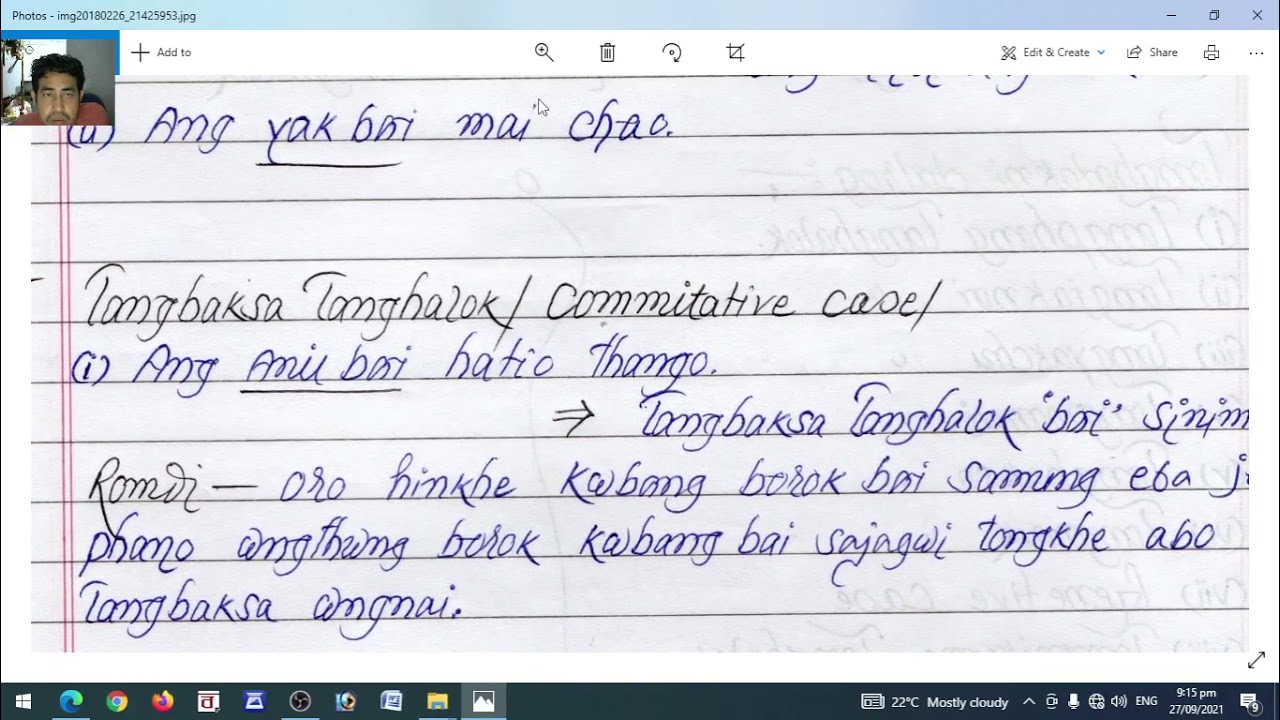 Photos - img20180226_21425953.jpg
Add to
Edit & Create
Share
(ii) Ang yak bai mai chao.
Tangbaksa Tanghalok/ Commitative case/
(i) Ang anii bai hatio thango.
⇒ Tangbaksa Tanghalok 'bai' sinim
Romdi — oro hinkhe kwbang borok bai
phano angthung borok kwbang bai sajagwi tongkhe abo
Tangbaksa angnai.
22°C Mostly cloudy
ENG
9:15 pm
27/09/2021
9